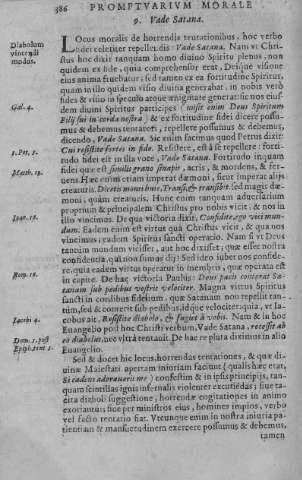 386 PROMPTVARIVM MORALE
9. Vade Satana.
Diabolum
vincendi
modus.
LOcus moralis de horrendis tentationibus, hoc verbo
Dei celeriter repellendis: Vade Satana. Nam vt Chri-
stus hoc dixit tanquam homo diuino Spiritu plenus, non
quidem ex fide, quia comprehensor erat, Deique visione
eius anima fruebatur, sed tamen ex ea fortitudine Spiritus,
quam in illo quidem visio diuina generabat, in nobis verò
fides & visio in speculo atque ænigmate generat: sic nos eius-
dem diuini Spiritus participes
Gal. 4.
Filij sui in corda nostra) & ex fortitudine fidei dicere possu-
mus & debemus tentatori, repellere possumus & debemus,
dicendo, Vade Satana. Sic enim faciendum quod Petrus dixit:
1. Pet. 5.
Cui resistite fortes in fide. Resistere, est à se repellere: forti-
tudo fidei est in illa voce, Vade Satana. Fortitudo inquam
Matth. 13.
fidei quæ est similis grano sinapis, acris, & mordens, & fer-
uens. Hæc enim etiam imperat dæmoni, sicut imperat alijs
creaturis. Dicetis monti huic, Transi, & transibit. sed magis dæ-
moni, quàm creaturis. Hunc enim tanquam aduersarium
proprium & principalem Christus pro nobis vicit, & nos in
Ioan. 16.
illo vincimus. De qua victoria dixit: Confidite, ego vici mun-
dum. Eadem enim est virtus qua Christus vicit, & qua nos
vincimus, eadem Spiritus sancti operatio. Nam si vt Deus
tancùm mundum vicisset, aut hoc dixisset; quæ esset nostra
confidentia, qui non sumus dij? Sed ideo iubet nos confide-
re, quia eadem virtus operatur in membris, quæ operata est
Rom. 16.
in capite. De hac victoria Paulus: Deus pacis conterat Sa-
tanam sub pedibus vestris velociter. Magna virtus Spiritus
sancti in confidibus fidelium, quæ Satanam non repellit tan-
tùm, sed & conterit sub pedibus, idque velociter: quia, vt Ia-
Iacobi 4.
cobus ait, Resistite diabolo, & fugiet à vobis. Nam & in hoc
Euangelio post hoc Christi verbum, Vade Satana, recessit ab
Dom. 1. post
Epiph. sent. 1.
eo diabolus, nec vltrà tentauit. De hac re plura diximus in alio
Euangelio.
Sed & docet hic locus, horrendas tentationes, & quæ di-
uinæ Maiestati apertam iniuriam faciunt (qualis hæc etat,
Si cadens adoraueris me) confestim & in ipsis principijs, tan-
quam scintillas ignis infernalis violenter excutiendas; siue ta-
cita diaboli suggestione, horrendæ cogitationes in animo
exoriantur; siue per ministros eius, homines impios, verbo
vel facto tentatio fiat. Vtcunque enim in nostra iniuria pa-
tientiam & mansuetudinem exercere possumus & debemus,
tamen